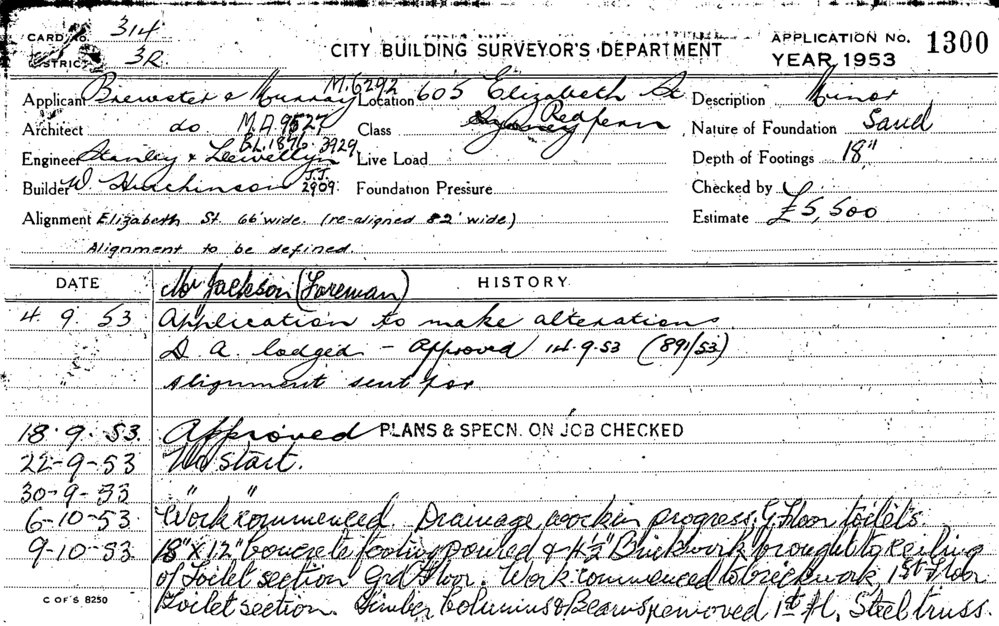 CARD No. 314
DISTRICT 3R.
CITY BUILDING SURVEYOR'S DEPARTMENT
APPLICATION No. 1300
YEAR 1953
Applicant Brewster & Murray M.6292 Location 605 Elizabeth St Description Minor
Architect do M.A 9527 Class Sydney Redfern Nature of Foundation Sand
Engineer Stanley & Llewellyn B.L.1876. 3929 Live Load Depth of Footings 18"
Builder W Hutchinson J.J. 2909 Foundation Pressure Checked by
Estimate £5,500
Alignment Elizabeth St. 66' wide. (re-aligned 82' wide)
Alignment to be defined.
DATE Mr Jackson (Foreman) HISTORY
4 9 53 Application to make alterations
D. A. lodged - approved 14.9.53 (891/53)
Alignment sent for
18.9.53. Approved PLANS & SPECN. ON JOB CHECKED
22-9-53 No start.
30-9-53 " "
6-10-53 Work commenced. Drainage work in progress, G. Floor toilets.
9-10-53 18" x 12" Concrete footing poured & 4½" Brickwork brought to ceiling
of Toilet section Grd Floor. Work commenced to brickwork 1st Floor
Toilet section. Timber Columns & Beams removed 1st Fl, Steel truss.
C OF S 8250